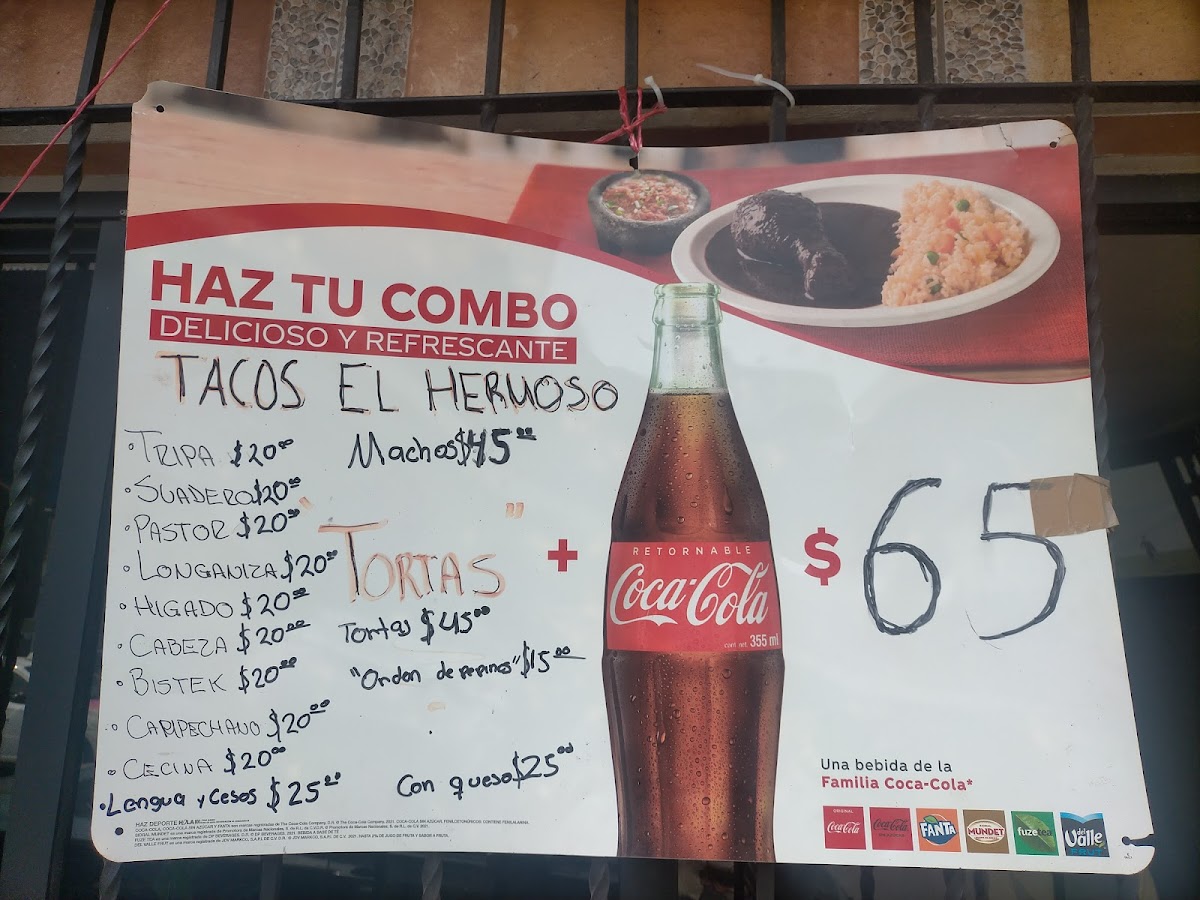 HAZ TU COMBO
DELICIOSO Y REFRESCANTE
TACOS EL HERMOSO
• TRIPA $20.00
• SUADERO $20.00
• PASTOR $20.00
• LONGANIZA $20.00
• HIGADO $20.00
• CABEZA $20.00
• BISTEK $20.00
• CAMPECHANO $20.00
• CECINA $20.00
• Lengua y Cesos $25.00
Machos $45.00
"TORTAS"
Tortas $45.00
"Orden de pepinos" $15.00
Con queso $25.00
+
RETORNABLE
Coca-Cola
cont. net. 355 ml
$65
Una bebida de la
Familia Coca-Cola*
ORIGINAL
Coca-Cola
Coca-Cola
FANTA
MUNDET
fuzetea
del Valle
HAZ DEPORTE